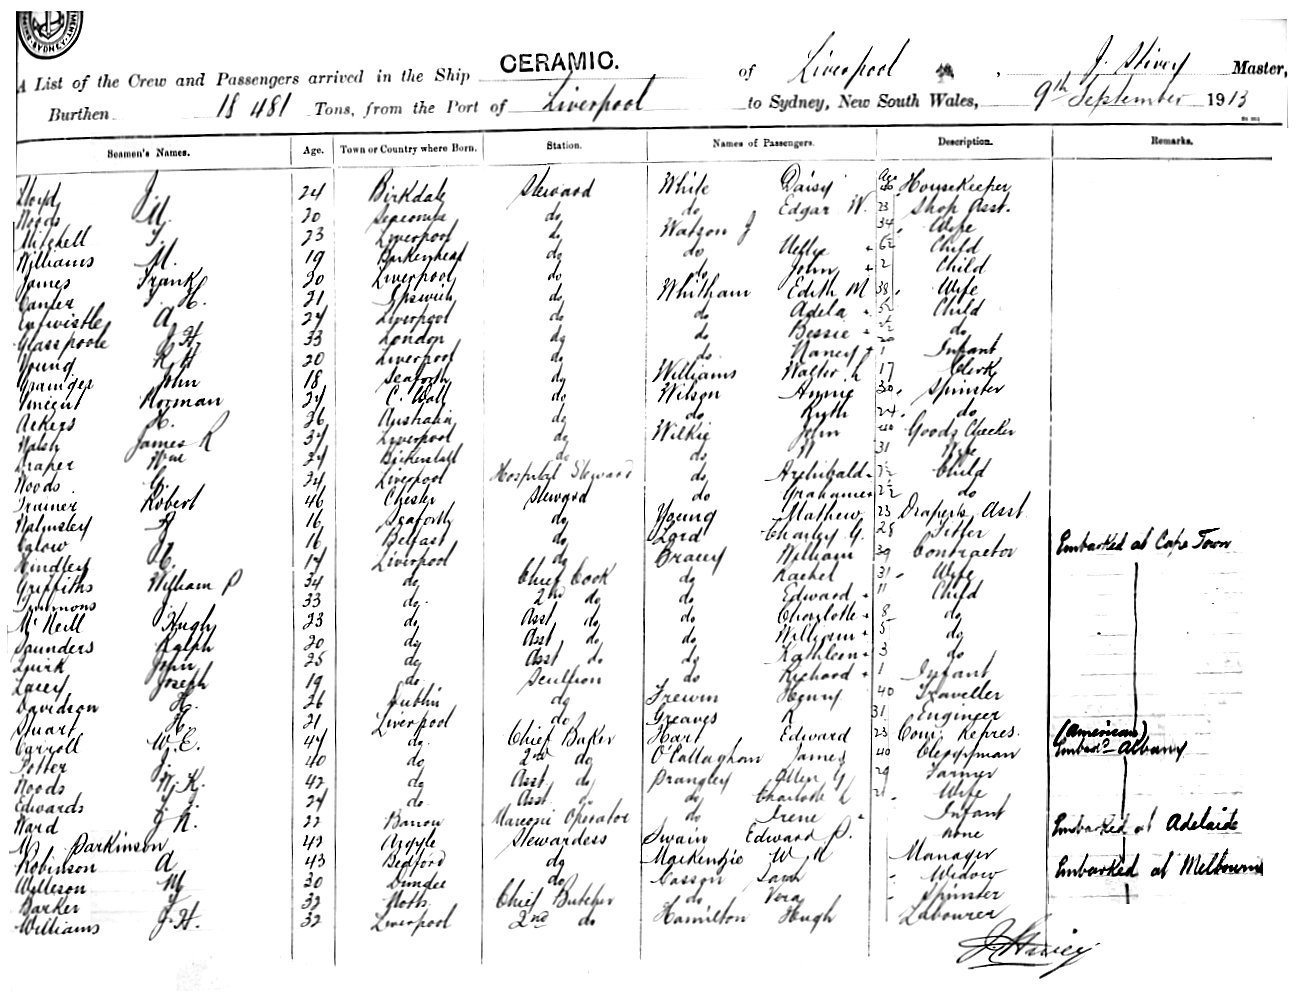 SYDNEY
CERAMIC.
A List of the Crew and Passengers arrived in the Ship of Liverpool , J. Stivey Master,
Burthen 18 481 Tons, from the Port of Liverpool to Sydney, New South Wales, 9th September 1913
Seamen's Names. Age. Town or Country where Born. Station. Names of Passengers. Description. Remarks.
Age
Lloyd J 24 Birkdale Steward White Daisy 40 Housekeeper
Woods M. 20 Seacombe do do Edgar W. 23 Shop Asst.
Mitchell T. 23 Liverpool do Watson J 34 Wife
Williams M. 19 Birkenhead do do Nellie Child
James Frank 20 Liverpool do do John 2 Child
Canter T. H. 21 Ipswich do Whitham Edith M 38 Wife
Entwistle A 24 Liverpool do do Adela Child
Glasspoole J H. 33 London do do Bessie do
Young R H 20 Liverpool do do Nancy 1 Infant
Grainger John 18 Seaforth do Williams Walter L 17 Clerk
Norman 24 C. Wall do Wilson Annie 30 Spinster
Akers H. 36 Australia do do Ruth 24 do
Walsh James R 34 Liverpool do Wilkie John Goods Checker
Draper Wm 24 do do 31 Wife
Woods G. 24 Liverpool Hospital Steward do Archibald Child
Trainer Robert 46 Chester Steward do Grahame do
Walmsley 16 Seaforth do Young Mathew 23 Drapers Asst
16 Belfast do Lord Charley G. 28 Fitter
Hindley 17 Liverpool do Bracey William 39 Contractor Embarked at Cape Town
Griffiths William P 34 do Chief Cook do Rachel 31 Wife
33 do 2nd do do Edward 11 Child
McNeill Hugh 23 do Asst do do Charlotte 8 do
Saunders Ralph 20 do Asst do do William 5 do
Quirk John 25 do Asst do do Kathleen 3 do
Lacey Joseph 19 do Scullion do Richard 1 Infant
Davidson H. 26 Dublin do Frewin Henry 40 Traveller
Stuart H. 21 Liverpool do Greaves R 31 Engineer
Carroll W. E. 44 do Chief Baker Hart Edward 23 Com. Repres. (American)
Potter J. 40 do 2nd do O'Callaghan James 40 Clergyman Embard Albany
Woods W. K. 42 do Asst do Prangley Allen G 29 Farmer
Edwards 24 do Asst do do Charlotte L 21 Wife
Ward J. R. 22 Barrow Marconi Operator do Irene Infant
M. Parkinson 42 Argyle Stewardess Swain Edward P. None Embarked at Adelaide
Robinson A 43 Bedford do Mackenzie W. Manager
Willeson M 30 Dundee do Casson Sarah Widow Embarked at Melbourne
Barker 32 Notts. Chief Butcher do Vera Spinster
Williams J. H. 32 Liverpool 2nd do Hamilton Hugh Labourer
J. Stivey